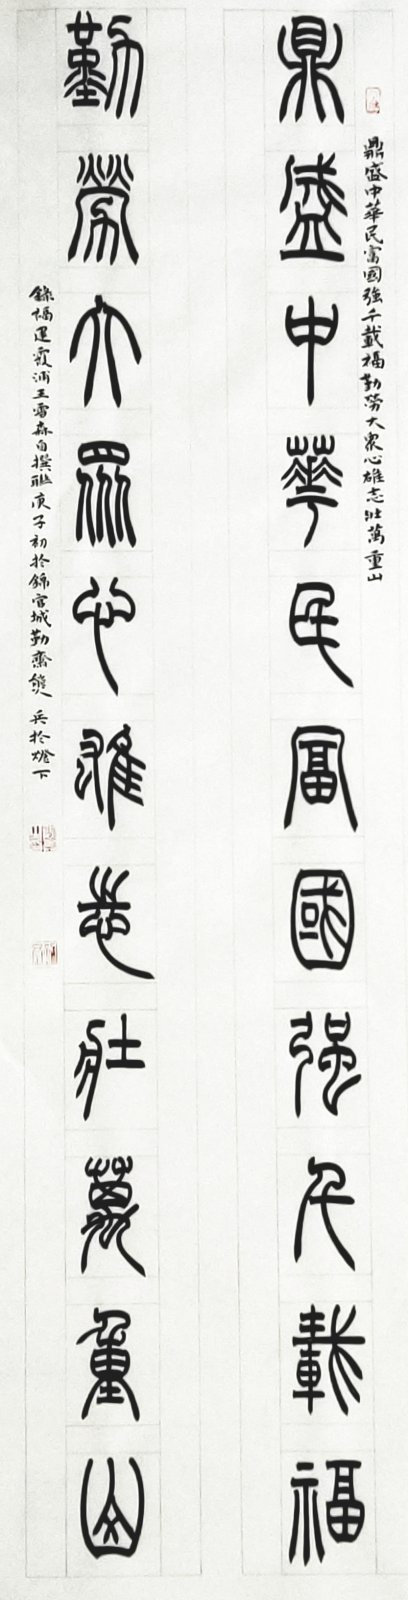 鼎盛中華民富國強千載福勤勞大衆心雄志壯萬重山
鼎盛中華民富國强千載福
勤勞大眾心雄志壯萬重山
錄福運霞浦王雷森自撰聯庚子初於錦官城勤齋雙兵於燈下